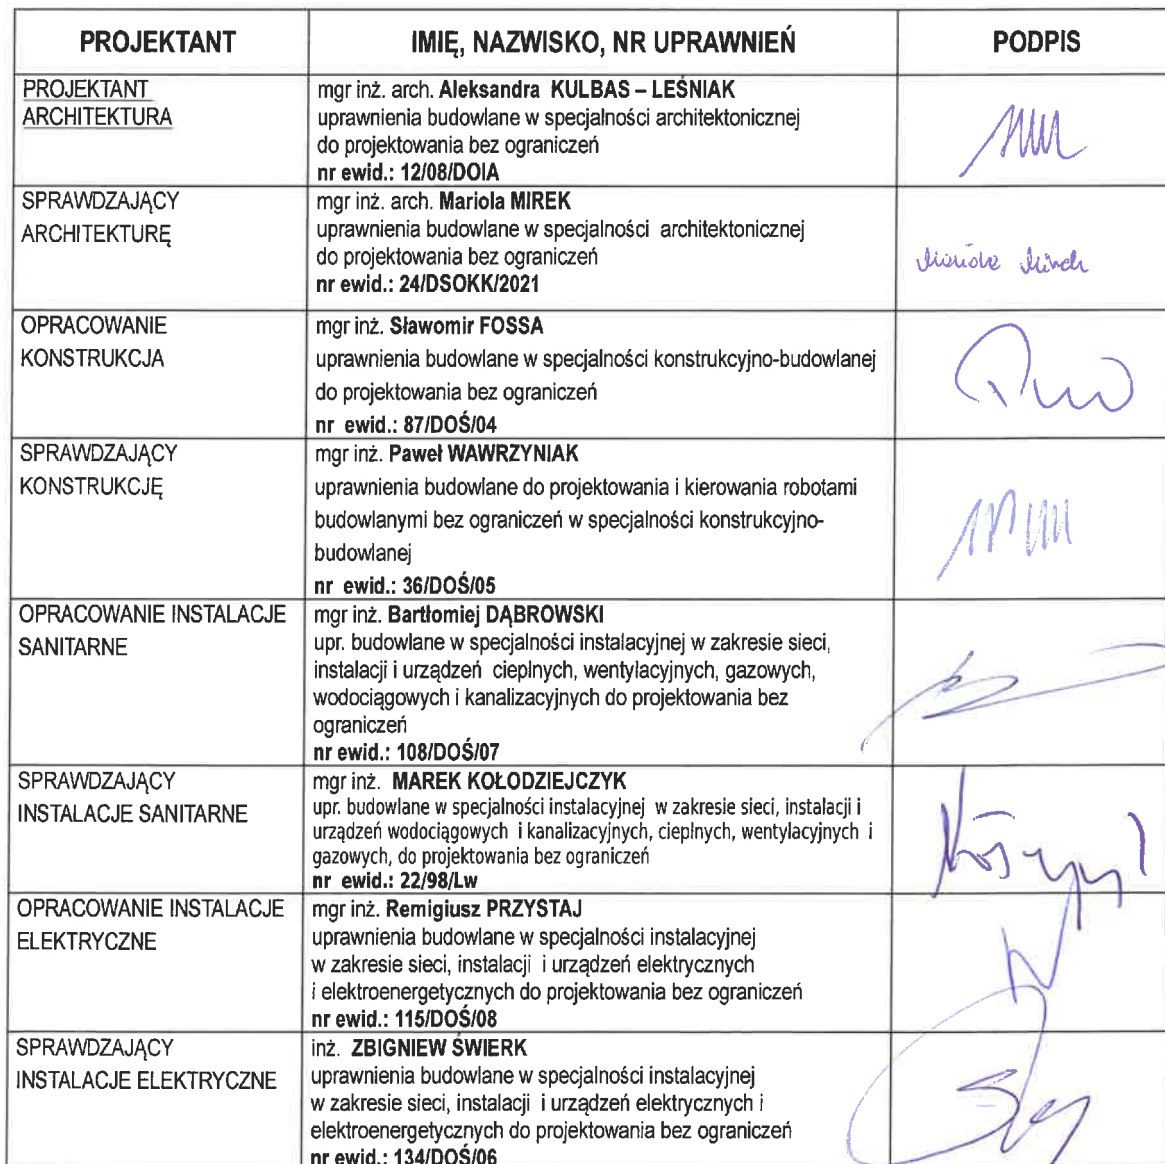 PROJEKTANT IMIĘ, NAZWISKO, NR UPRAWNIEŃ PODPIS
PROJEKTANT
ARCHITEKTURA
mgr inż. arch. Aleksandra KULBAS – LEŚNIAK
uprawnienia budowlane w specjalności architektonicznej
do projektowania bez ograniczeń
nr ewid.: 12/08/DOIA
SPRAWDZAJĄCY
ARCHITEKTURĘ
mgr inż. arch. Mariola MIREK
uprawnienia budowlane w specjalności architektonicznej
do projektowania bez ograniczeń
nr ewid.: 24/DSOKK/2021
Mariola Mirek
OPRACOWANIE
KONSTRUKCJA
mgr inż. Sławomir FOSSA
uprawnienia budowlane w specjalności konstrukcyjno-budowlanej
do projektowania bez ograniczeń
nr ewid.: 87/DOŚ/04
SPRAWDZAJĄCY
KONSTRUKCJĘ
mgr inż. Paweł WAWRZYNIAK
uprawnienia budowlane do projektowania i kierowania robotami
budowlanymi bez ograniczeń w specjalności konstrukcyjno-
budowlanej
nr ewid.: 36/DOŚ/05
OPRACOWANIE INSTALACJE
SANITARNE
mgr inż. Bartłomiej DĄBROWSKI
upr. budowlane w specjalności instalacyjnej w zakresie sieci,
instalacji i urządzeń cieplnych, wentylacyjnych, gazowych,
wodociągowych i kanalizacyjnych do projektowania bez
ograniczeń
nr ewid.: 108/DOŚ/07
SPRAWDZAJĄCY
INSTALACJE SANITARNE
mgr inż. MAREK KOŁODZIEJCZYK
upr. budowlane w specjalności instalacyjnej w zakresie sieci, instalacji i
urządzeń wodociągowych i kanalizacyjnych, cieplnych, wentylacyjnych i
gazowych, do projektowania bez ograniczeń
nr ewid.: 22/98/Lw
OPRACOWANIE INSTALACJE
ELEKTRYCZNE
mgr inż. Remigiusz PRZYSTAJ
uprawnienia budowlane w specjalności instalacyjnej
w zakresie sieci, instalacji i urządzeń elektrycznych
i elektroenergetycznych do projektowania bez ograniczeń
nr ewid.: 115/DOŚ/08
SPRAWDZAJĄCY
INSTALACJE ELEKTRYCZNE
inż. ZBIGNIEW ŚWIERK
uprawnienia budowlane w specjalności instalacyjnej
w zakresie sieci, instalacji i urządzeń elektrycznych i
elektroenergetycznych do projektowania bez ograniczeń
nr ewid.: 134/DOŚ/06